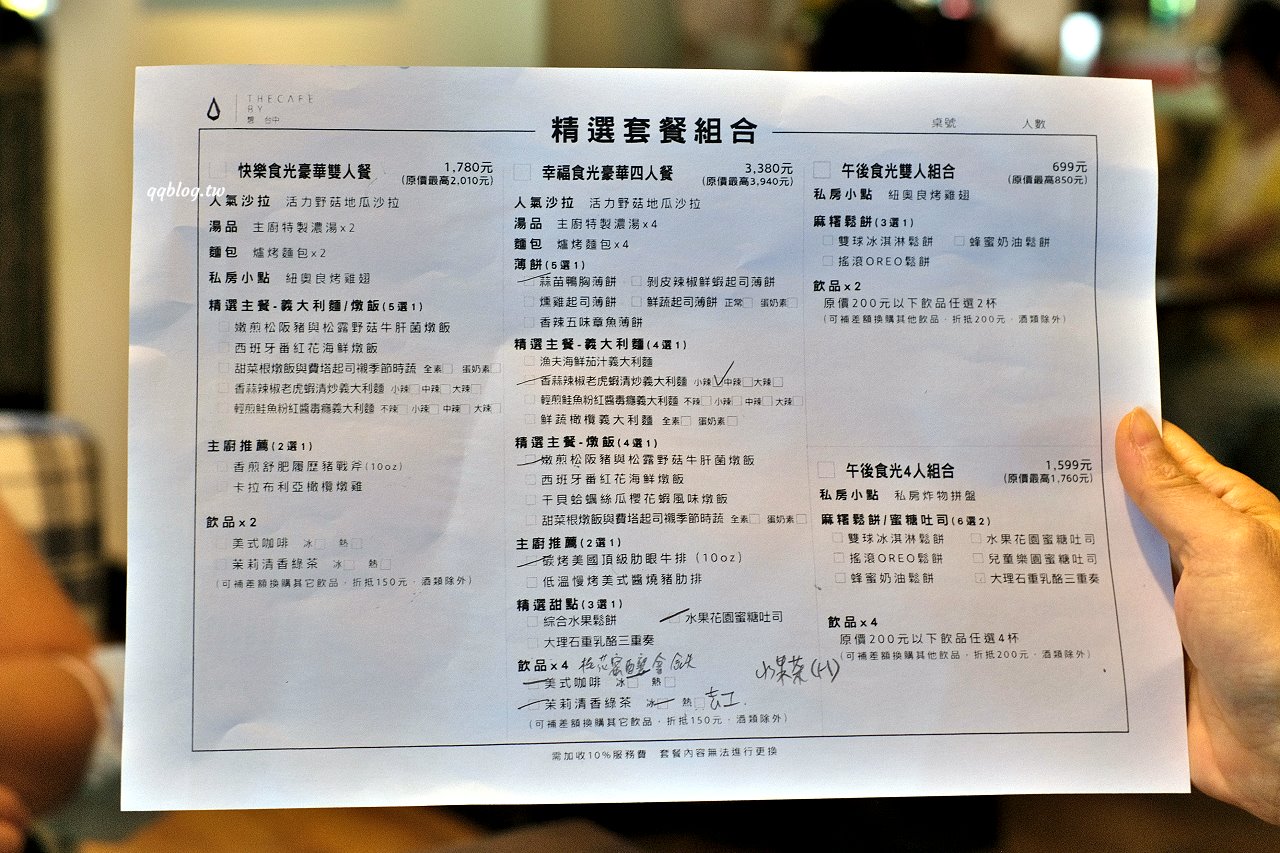 THECAFE
BY
台中
精選套餐組合
桌號 人數
qqblog.tw
快樂食光豪華雙人餐 1,780元
(原價最高2,010元)
人氣沙拉 活力野菇地瓜沙拉
湯品 主廚特製濃湯x2
麵包 爐烤麵包x2
私房小點 紐奧良烤雞翅
精選主餐-義大利麵/燉飯(5選1)
嫩煎松阪豬與松露野菇牛肝菌燉飯
西班牙番紅花海鮮燉飯
甜菜根燉飯與費塔起司襯季節時蔬 全素 蛋奶素
香蒜辣椒老虎蝦清炒義大利麵 小辣 中辣 大辣
輕煎鮭魚粉紅醬毒癮義大利麵 不辣 小辣 中辣 大辣
主廚推薦(2選1)
香煎舒肥履歷豬戰斧(10oz)
卡拉布利亞橄欖燉雞
飲品x2
美式咖啡 冰 熱
茉莉清香綠茶 冰 熱
(可補差額換購其它飲品，折抵150元，酒類除外)
幸福食光豪華四人餐 3,380元
(原價最高3,940元)
人氣沙拉 活力野菇地瓜沙拉
湯品 主廚特製濃湯x4
麵包 爐烤麵包x4
薄餅(5選1)
蒜苗鴨胸薄餅 剝皮辣椒鮮蝦起司薄餅
燻雞起司薄餅 鮮蔬起司薄餅 正常 蛋奶素
香辣五味章魚薄餅
精選主餐-義大利麵(4選1)
漁夫海鮮茄汁義大利麵
香蒜辣椒老虎蝦清炒義大利麵 小辣 中辣 大辣
輕煎鮭魚粉紅醬毒癮義大利麵 不辣 小辣 中辣 大辣
鮮蔬橄欖義大利麵 全素 蛋奶素
精選主餐-燉飯(4選1)
嫩煎松阪豬與松露野菇牛肝菌燉飯
西班牙番紅花海鮮燉飯
干貝蛤蠣絲瓜櫻花蝦風味燉飯
甜菜根燉飯與費塔起司襯季節時蔬 全素 蛋奶素
主廚推薦(2選1)
碳烤美國頂級肋眼牛排(10oz)
低溫慢烤美式醬燒豬肋排
精選甜點(3選1)
綜合水果鬆餅 水果花園蜜糖吐司
大理石重乳酪三重奏
飲品x4 水果茶(H)
美式咖啡 冰 熱
茉莉清香綠茶 冰 熱 去工.
(可補差額換購其它飲品，折抵150元，酒類除外)
午後食光雙人組合 699元
(原價最高850元)
私房小點 紐奧良烤雞翅
麻糬鬆餅(3選1)
雙球冰淇淋鬆餅 蜂蜜奶油鬆餅
搖滾OREO鬆餅
飲品x2
原價200元以下飲品任選2杯
(可補差額換購其他飲品，折抵200元，酒類除外)
午後食光4人組合 1,599元
(原價最高1,760元)
私房小點 私房炸物拼盤
麻糬鬆餅/蜜糖吐司(6選2)
雙球冰淇淋鬆餅 水果花園蜜糖吐司
搖滾OREO鬆餅 兒童樂園蜜糖吐司
蜂蜜奶油鬆餅 大理石重乳酪三重奏
飲品x4
原價200元以下飲品任選4杯
(可補差額換購其他飲品，折抵200元，酒類除外)
需加收10%服務費 套餐內容無法進行更換